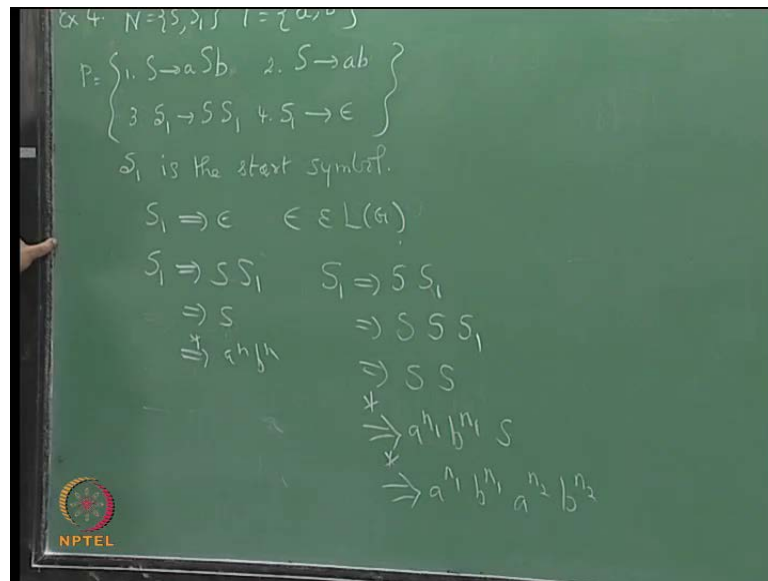 Ex 4. N={S,S₁} T={a,b}
P= { 1. S→aSb 2. S→ab
3. S₁→SS₁ 4. S₁→ϵ }
S₁ is the start symbol.
S₁ ⇒ ϵ ϵ ε L(G)
S₁ ⇒ S S₁
⇒ S
⇒* aⁿbⁿ
S₁ ⇒ S S₁
⇒ S S S₁
⇒ S S
⇒* a^n₁ b^n₁ S
⇒* a^n₁ b^n₁ a^n₂ b^n₂
NPTEL